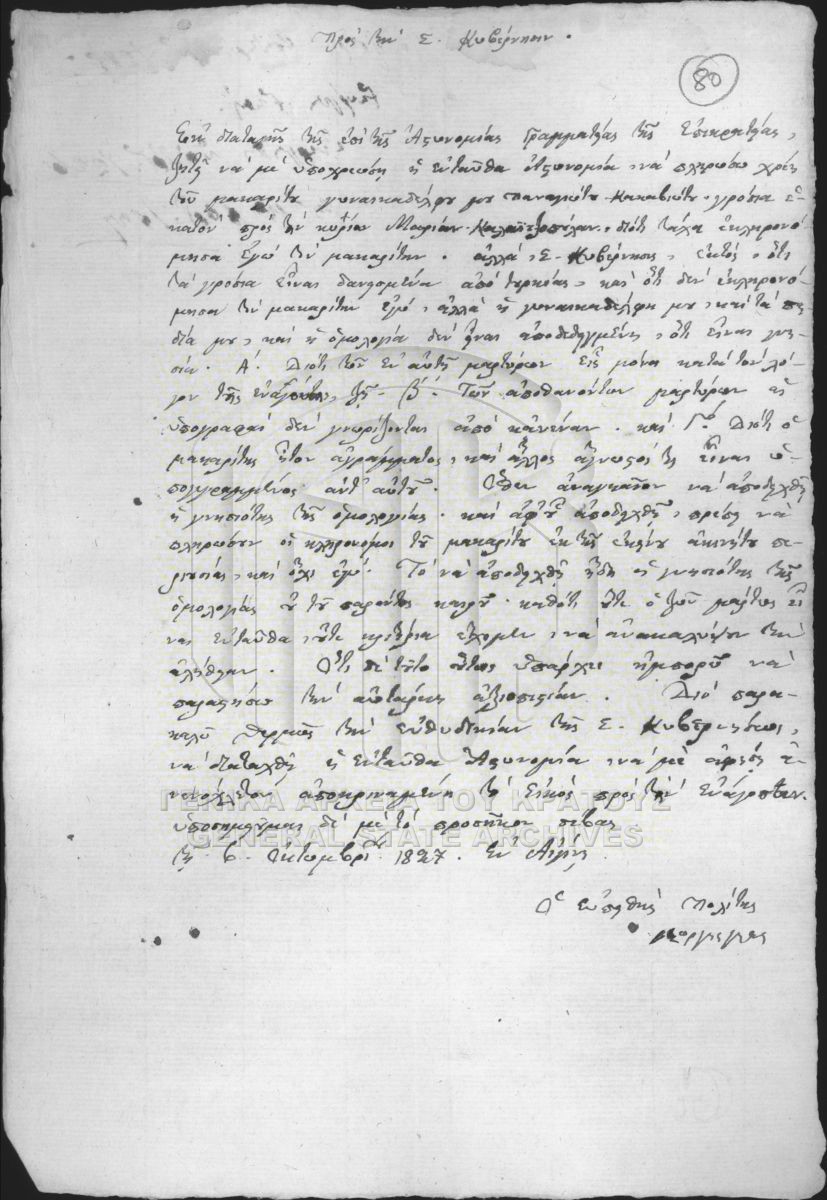 Πρὸς τὴν Σ. Κυβέρνησιν.
80
διαταγῆς τῆς ἐπὶ τῆς Ἀστυνομίας Γραμματείας τῆς Ἐπικρατείας,
ζητεῖ νὰ μὲ ὑποχρεώσῃ ἡ ἐνταῦθα ἀστυνομία, νὰ πληρώσω χρέη
τοῦ μακαρίτου γυναικαδέλφου μου Παναγιώτου γρόσια ἑ-
κατὸν πρὸς τὴν κυρίαν Μαρίαν διότι τάχα ἐκληρονό-
μησα ἐγὼ τὸν μακαρίτην. ἀλλὰ, Σ. Κυβέρνησις, ἐκτὸς, ὅτι
τὰ γρόσια εἶναι δανεισμένα ἀπὸ τουρκίας, καὶ ὅτι δὲν ἐκληρονό-
μησα τὸν μακαρίτην ἐγὼ, ἀλλὰ ἡ γυναικαδέλφη μου, καὶ τὰ πε-
διά μου, καὶ ἡ ὁμολογία δὲν εἶναι ἀποδεδειγμένη, ὅτι εἶναι γνη-
σία. Α΄. Διότι τῶν ἐν αὐτῇ μαρτύρων εἷς μόνον κατὰ τὸν λό-
γον τῆς ζῇ. β΄. Τῶν ἀποθανόντων μαρτύρων αἱ
ὑπογραφαὶ δὲν γνωρίζονται ἀπὸ κανέναν. καὶ Γ.΄ Διότι ὁ
μακαρίτης ἦτον ἀγράμματος, καὶ ἄλλος ἄγνωστός τις εἶναι ὑ-
πογεγραμμένος ἀντ' αὐτοῦ. Ὅθεν ἀναγκαῖον νὰ ἀποδειχθῇ
ἡ γνησιότης τῆς ὁμολογίας. καὶ ἀφ' οὗ ἀποδειχθῇ, πρέπει νὰ
πληρώσουν οἱ κληρονόμοι τοῦ μακαρίτου ἐκ τῆς ἐκείνου ἀκινήτου πε-
ριουσίας, καὶ ὄχι ἐγώ. Τὸ νὰ ἀποδειχθῇ ἤδη ἡ γνησιότης τῆς
ὁμολογίας οὐ τοῦ παρόντος καιροῦ. καθότι οὔτε ὁ ζῶν μάρτυς εἶ-
ναι ἐνταῦθα, οὔτε κριτήρια ἔχομεν, νὰ ἀνακαλύψουν τὴν
ἀλήθειαν. Ὅτι δὲ τοῦτο οὕτως ὑπάρχει ἠμπορῶ νὰ
παραστήσω τὴν αὐτάρκη ἀξιοπιστίαν. Διὸ παρα-
καλῶ θερμῶς τὴν εὐθυδικίαν τῆς Σ. Κυβερνήσεως,
νὰ διαταχθῇ ἡ ἐνταῦθα Ἀστυνομία, νὰ μὲ ἀφήσῃ ἀ-
νενόχλητον ἀποκριναμένη τὰ εἰκός πρὸς τὴν
ὑποσημειοῦμαι δὲ μὲ τὸ προσῆκον σέβας
Τῇ 6. Ὀκτωμβρίου 1827. Ἐν Αἰγίνῃ.
Ὁ εὐπειθὴς Πολίτης
ΓΕΝΙΚΑ ΑΡΧΕΙΑ ΤΟΥ ΚΡΑΤΟΥΣ
GENERAL STATE ARCHIVES